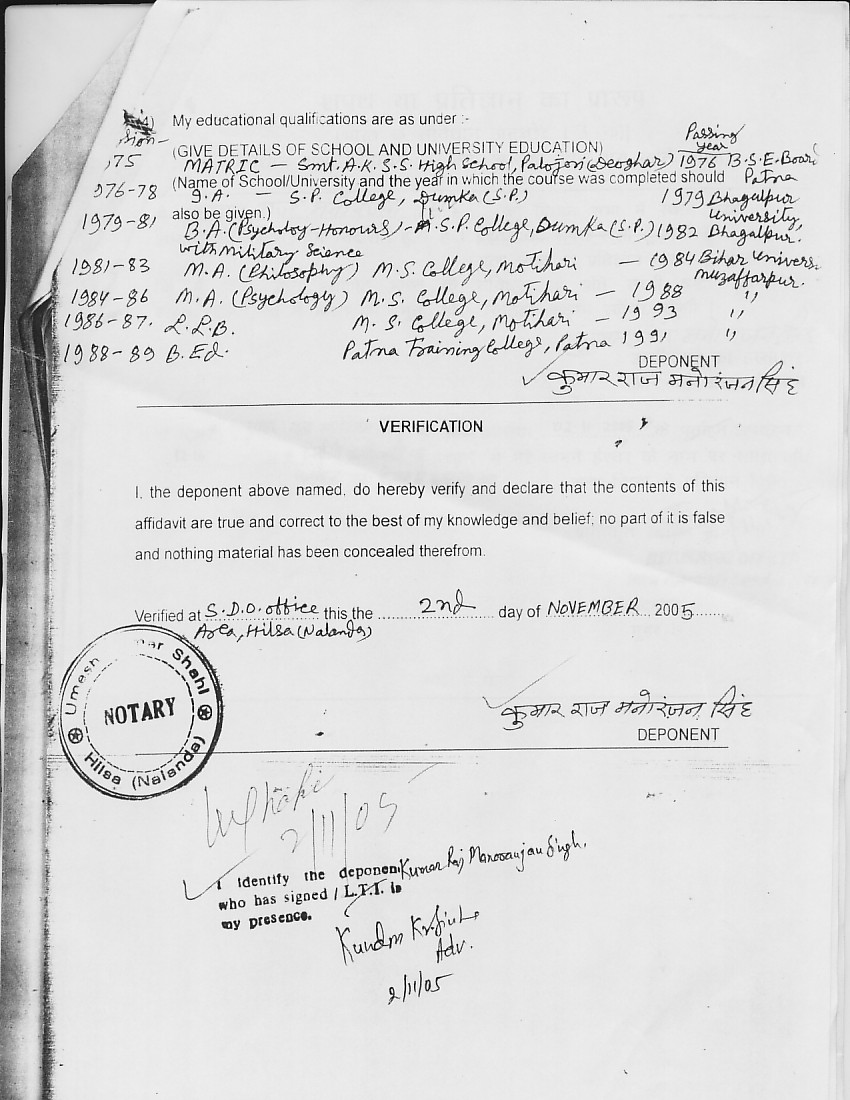 My educational qualifications are as under :-
Passing
year
(GIVE DETAILS OF SCHOOL AND UNIVERSITY EDUCATION)
75 MATRIC - Smt. A.K.S.S. High School, Palojori (Deoghar) 1976 B.S.E. Board
Patna
(Name of School/University and the year in which the course was completed should
976-78 I.A. - S.P. College, Dumka (S.P.) 1979 Bhagalpur
University,
also be given.)
1979-81 B.A. (Psycholoy-Honours) - S.P. College, Dumka (S.P.) 1982 Bhagalpur.
with Military Science
1981-83 M.A. (Philosophy) M.S. College, Motihari - 1984 Bihar Univers
Muzaffarpur.
1984-86 M.A. (Psychology) M.S. College, Motihari - 1988 "
1986-87. L.L.B. M.S. College, Motihari - 1993 "
1988-89 B.Ed. Patna Training College, Patna 1991 "
DEPONENT
कुमार राज मनोरंजन सिंह
VERIFICATION
I, the deponent above named, do hereby verify and declare that the contents of this
affidavit are true and correct to the best of my knowledge and belief; no part of it is false
and nothing material has been concealed therefrom.
Verified at S.D.O. office this the 2nd day of NOVEMBER 2005
Area, Hilsa (Nalanda)
Umesh mar Shahi
NOTARY
Hilsa (Nalanda)
कुमार राज मनोरंजन सिंह
DEPONENT
2/11/05
I identify the deponent Kumar Raj Manoranjan Singh.
who has signed / L.T.I. in
my presence.
Adv.
2/11/05